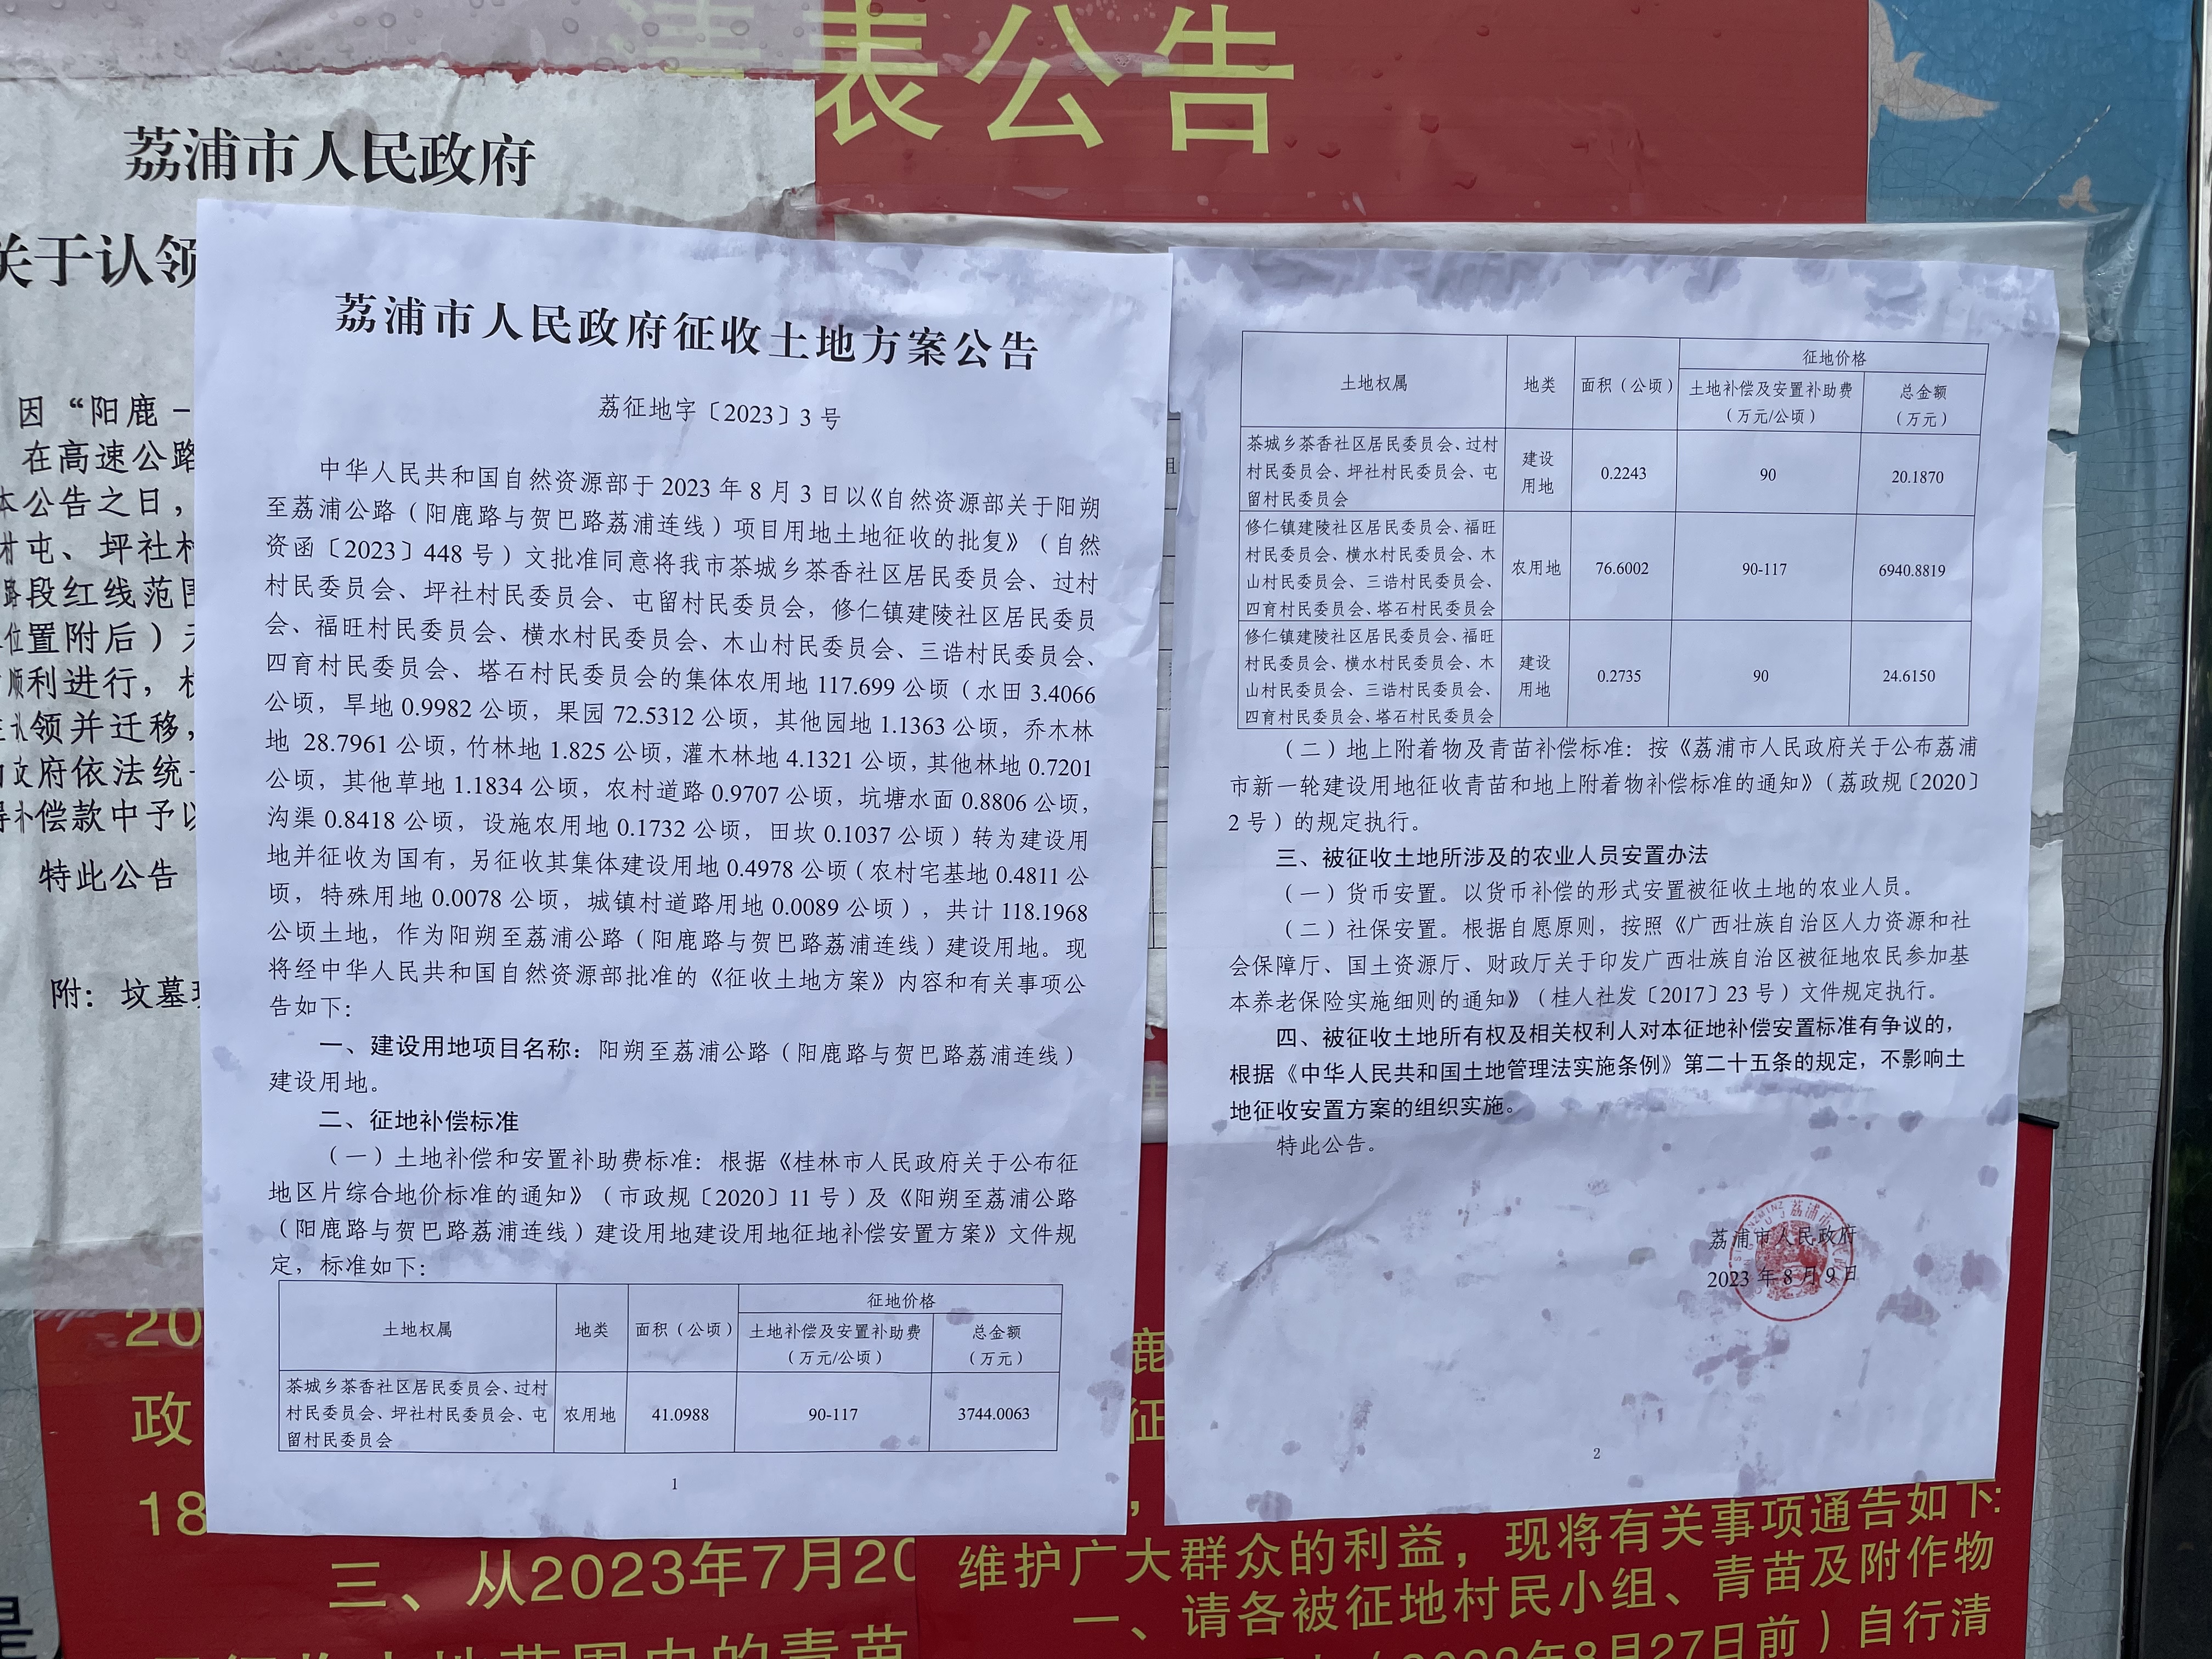 表公告
荔浦市人民政府
关于认领
因“阳鹿－
在高速公路
本公告之日，
村屯、坪社村
路段红线范围
位置附后）
顺利进行，
领并迁移，
府依法统一
偿款中予以
特此公告
附：坟墓
荔浦市人民政府征收土地方案公告
荔征地字〔2023〕3 号
中华人民共和国自然资源部于 2023 年 8 月 3 日以《自然资源部关于阳朔
至荔浦公路（阳鹿路与贺巴路荔浦连线）项目用地土地征收的批复》（自然
资函〔2023〕448 号）文批准同意将我市茶城乡茶香社区居民委员会、过村
村民委员会、坪社村民委员会、屯留村民委员会，修仁镇建陵社区居民委员
会、福旺村民委员会、横水村民委员会、木山村民委员会、三诰村民委员会、
四育村民委员会、塔石村民委员会的集体农用地 117.699 公顷（水田 3.4066
公顷，旱地 0.9982 公顷，果园 72.5312 公顷，其他园地 1.1363 公顷，乔木林
地 28.7961 公顷，竹林地 1.825 公顷，灌木林地 4.1321 公顷，其他林地 0.7201
公顷，其他草地 1.1834 公顷，农村道路 0.9707 公顷，坑塘水面 0.8806 公顷，
沟渠 0.8418 公顷，设施农用地 0.1732 公顷，田坎 0.1037 公顷）转为建设用
地并征收为国有，另征收其集体建设用地 0.4978 公顷（农村宅基地 0.4811 公
顷，特殊用地 0.0078 公顷，城镇村道路用地 0.0089 公顷），共计 118.1968
公顷土地，作为阳朔至荔浦公路（阳鹿路与贺巴路荔浦连线）建设用地。现
将经中华人民共和国自然资源部批准的《征收土地方案》内容和有关事项公
告如下：
一、建设用地项目名称：阳朔至荔浦公路（阳鹿路与贺巴路荔浦连线）
建设用地。
二、征地补偿标准
（一）土地补偿和安置补助费标准：根据《桂林市人民政府关于公布征
地区片综合地价标准的通知》（市政规〔2020〕11 号）及《阳朔至荔浦公路
（阳鹿路与贺巴路荔浦连线）建设用地建设用地征地补偿安置方案》文件规
定，标准如下：
土地权属 地类 面积（公顷） 征地价格
土地补偿及安置补助费（万元/公顷） 总金额（万元）
茶城乡茶香社区居民委员会、过村
村民委员会、坪社村民委员会、屯
留村民委员会
农用地 41.0988 90-117 3744.0063
1
土地权属 地类 面积（公顷） 征地价格
土地补偿及安置补助费（万元/公顷） 总金额（万元）
茶城乡茶香社区居民委员会、过村
村民委员会、坪社村民委员会、屯
留村民委员会
建设用地 0.2243 90 20.1870
修仁镇建陵社区居民委员会、福旺
村民委员会、横水村民委员会、木
山村民委员会、三诰村民委员会、
四育村民委员会、塔石村民委员会
农用地 76.6002 90-117 6940.8819
修仁镇建陵社区居民委员会、福旺
村民委员会、横水村民委员会、木
山村民委员会、三诰村民委员会、
四育村民委员会、塔石村民委员会
建设用地 0.2735 90 24.6150
（二）地上附着物及青苗补偿标准：按《荔浦市人民政府关于公布荔浦
市新一轮建设用地征收青苗和地上附着物补偿标准的通知》（荔政规〔2020〕
2 号）的规定执行。
三、被征收土地所涉及的农业人员安置办法
（一）货币安置。以货币补偿的形式安置被征收土地的农业人员。
（二）社保安置。根据自愿原则，按照《广西壮族自治区人力资源和社
会保障厅、国土资源厅、财政厅关于印发广西壮族自治区被征地农民参加基
本养老保险实施细则的通知》（桂人社发〔2017〕23 号）文件规定执行。
四、被征收土地所有权及相关权利人对本征地补偿安置标准有争议的，
根据《中华人民共和国土地管理法实施条例》第二十五条的规定，不影响土
地征收安置方案的组织实施。
特此公告。
荔浦市人民政府
2023 年 8 月 9 日
2
20
政
18
三、从2023年7月20
鹿
征
维护广大群众的利益，现将有关事项通告如下：
一、请各被征地村民小组、青苗及附作物
8月27日前）自行清